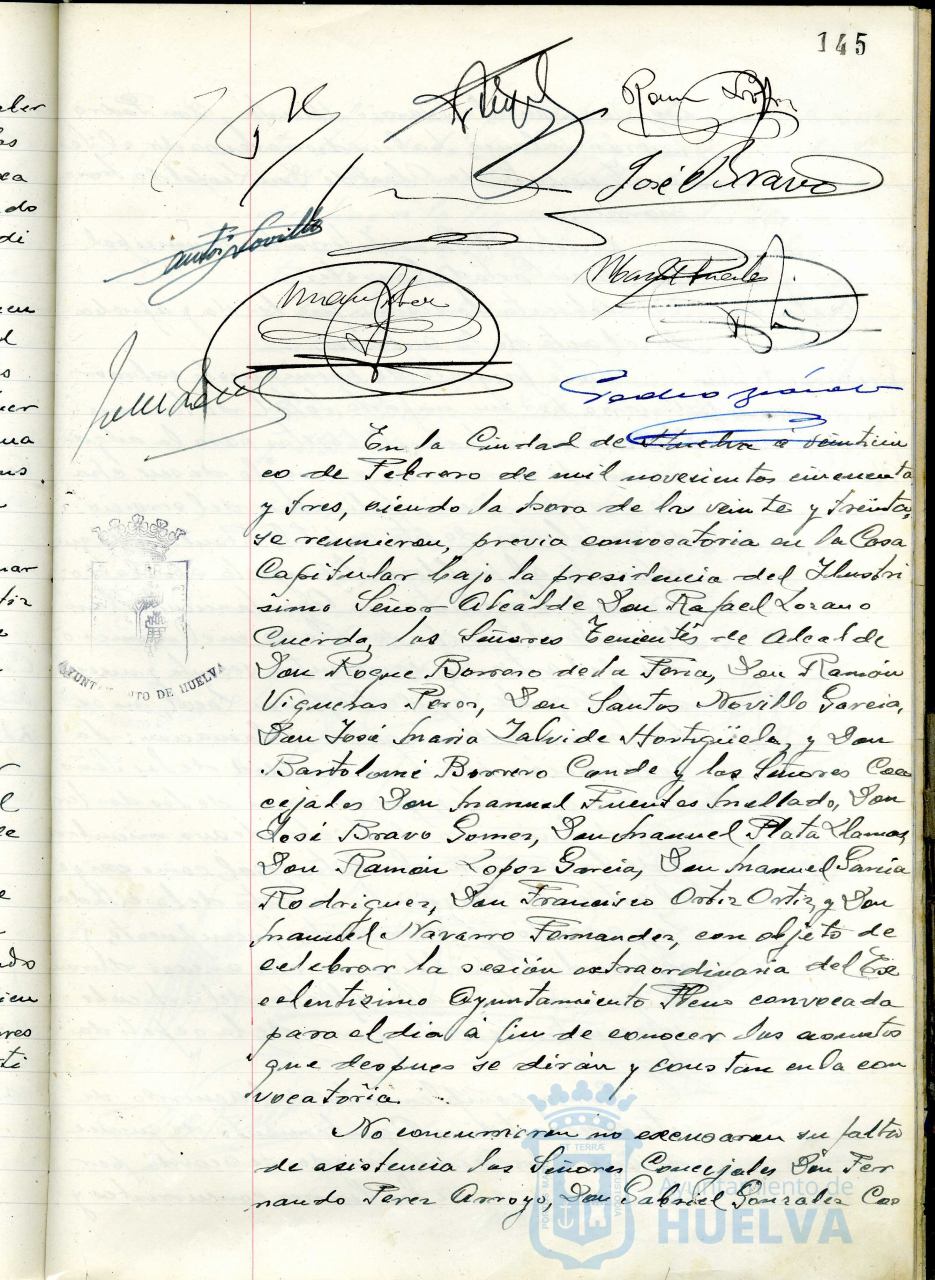 145
Ramón López
José Bravo
Pedro
En la Ciudad de Huelva a veinticin
co de Febrero de mil novecientos cincuenta
y tres, siendo la hora de las veinte y treinta,
se reunieron, previa convocatoria en la Casa
Capitular bajo la presidencia del Ilustri
simo Señor Alcalde Don Rafael Lozano
Cuerda, los Señores Tenientes de Alcalde
Don Roque Borrero de la Feria, Don Ramón
Vigueras Perez, Don Santos Novillo Garcia,
Don José Maria Zalvide Hortigüela, y Don
Bartolomé Borrero Conde y los Señores Con
cejales Don Manuel Fuentes Mellado, Don
José Bravo Gomez, Don Manuel Plata Llamas,
Don Ramón Lopez Garcia, Don Manuel Garcia
Rodriguez, Don Francisco Ortiz Ortiz, y Don
Manuel Navarro Fernandez, con objeto de
celebrar la sesión extraordinaria del Ex
celentisimo Ayuntamiento Pleno convocada
para el dia á fin de conocer los asuntos
que despues se dirán y constan en la con
vocatoria.
No concurrieron no excusaron su falta
de asistencia los Señores Concejales Don Fer
nando Perez Arroyo, Don Gabriel Gonzalez
AYUNTAMIENTO DE HUELVA
Ayuntamiento de
HUELVA